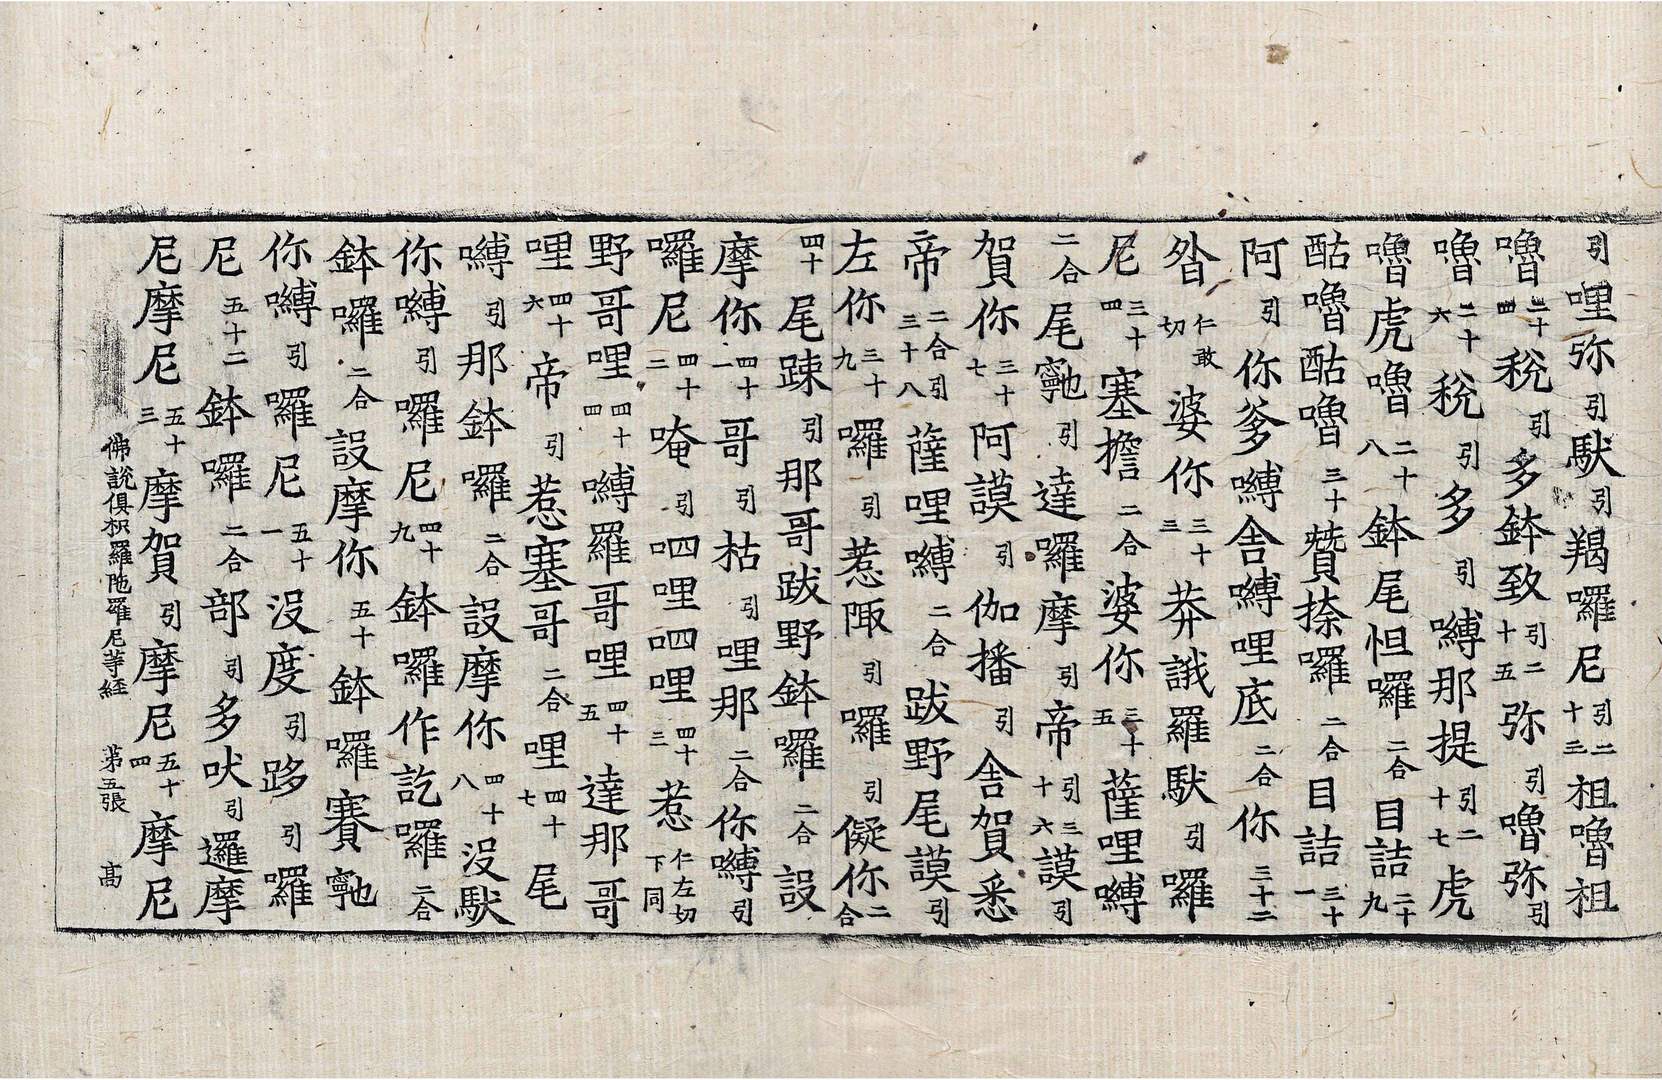 引哩弥引馱引羯囉尼引二十三祖嚕祖
嚕二十四稅引多鉢致引二十五弥引嚕弥引
嚕二十六稅引多引嚩那提引二十七虎
嚕虎嚕二十八鉢尾怛囉二合目詰二十九
酤嚕酤嚕三十贊捺囉二合目詰三十一
阿引你爹嚩舍嚩哩底二合你三十二
明仁敢切婆你三十三莽誐羅馱引囉
尼三十四塞擔二合婆你三十五薩哩嚩
二合尾引達囉摩引帝引三十六謨引
賀你三十七阿謨引伽播引舍賀悉
帝二合引三十八薩哩嚩二合跋野尾謨引
左你三十九囉引惹陬引囉引儗你二合
四十尾踈引那哥跋野鉢囉二合設
摩你四十一哥引枯引哩那二合你嚩引
囉尼四十二唵引呬哩呬哩四十三惹仁左切下同
野哥哩四十四嚩羅哥哩四十五達那哥
哩四十六帝引惹塞哥二合哩四十七尾
嚩引那鉢囉二合設摩你四十八沒馱
你嚩引囉尼四十九鉢囉作訖囉二合
鉢囉二合設摩你五十鉢囉賽
你嚩引囉尼五十一沒度引跢引囉
尼五十二鉢囉二合部引多吠引邏摩
尼摩尼五十三摩賀引摩尼五十四摩尼
佛說俱枳羅陁羅尼等經 第五張 髙